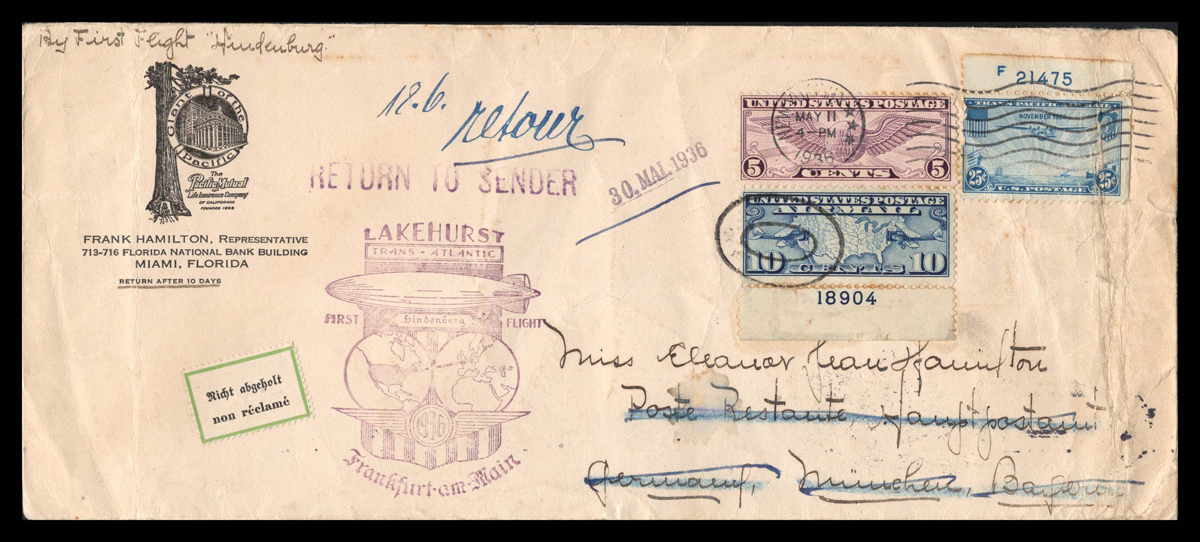 By First Flight "Hindenburg"
Giant of the
Pacific
The
Pacific Mutual
Life Insurance Company
OF CALIFORNIA
FOUNDED 1868
FRANK HAMILTON, REPRESENTATIVE
713-716 FLORIDA NATIONAL BANK BUILDING
MIAMI, FLORIDA
RETURN AFTER 10 DAYS
12.6.
retour
RETURN TO SENDER
30. MAI. 1936
LAKEHURST
TRANS-ATLANTIC
FIRST Hindenburg FLIGHT
1936
Frankfurt-am-Main
Nicht abgeholt
non réclamé
UNITED STATES POSTAGE
MAY 11
4-PM
1936
5 CENTS 5
F 21475
TRANS-PACIFIC AIR MAIL
NOVEMBER
25¢ U.S. POSTAGE 25¢
UNITED STATES POSTAGE
AIR MAIL
10 CENTS 10
18904
Miss Eleanor Jean Hamilton
Poste Restante, Hauptpostamt
Germany, München, Bayern